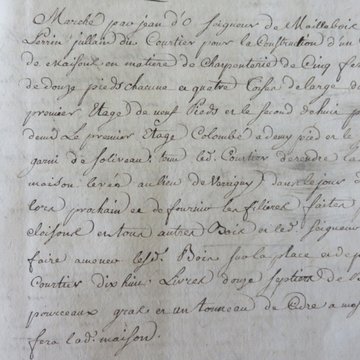 Marché par Jean d'O Seigneur de Maillebois
Perrin Jullain dit Courtier pour la Construction d'un
de Maison en matiere de Charpenterie de Cinq
de douze pieds chacune en quatre Toises de large
premier Etage de neuf Pieds et le second de huit
demi Le premier Etage Colombé a demy pied et le
garni de soliveau. led. Courtier de rendre la
maison levée au lieu de dans le jour
lors prochain et de fournir les filieres faites
cloisons et tous autres Bois et led. Seigneur
faire amener lesd. Bois sur la place et de
Courtier dix huit Livres douze septiers de
pourceaux gras et un tonneau de Cidre a
fera lad. maison.